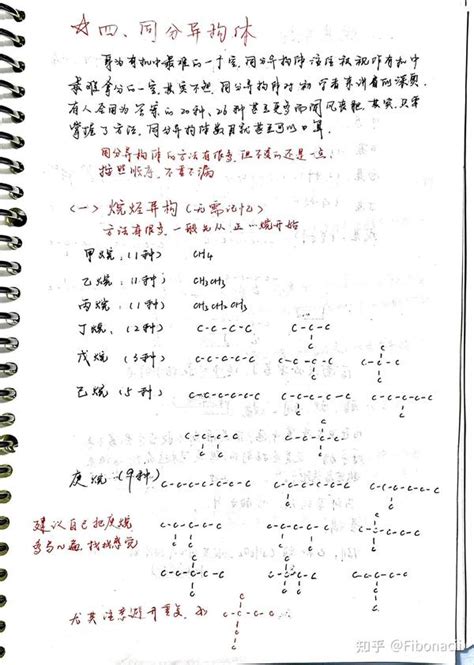 ☆四、同分异构体
身为有机中最难的一个点,同分异构体往往被视作有机中
最难拿分的一点,其实不然,同分异构体对初学者来讲有例深奥,
有人会因为答案的20种、28种甚至更多而闻风丧胆,其实,只要
掌握了方法,同分异构体数目就甚至可以口算。
同分异构体的方法有很多,但不变的还是一点:
按照顺序,不重不漏
(一) 烷烃异构 (需记忆)
方法有很多,一般先从正…烷开始
甲烷:(1种) CH4
乙烷:(1种) CH3CH3
丙烷:(1种) CH3CH2CH3
丁烷:(2种) C-C-C-C C-C-C
C
戊烷:(3种) C-C-C-C-C C-C-C-C C-C-C
C C C
己烷:(5种) C-C-C-C-C-C C-C-C-C-C C-C-C-C-C
C C
C-C-C-C C-C-C-C
庚烷:(9种) C-C-C-C-C-C-C C-C-C-C-C-C C-C-C-C-C-C
建议自己把庚烷
多写几遍,找找感觉
尤其注意避开重复,如
知乎 @Fibonacii